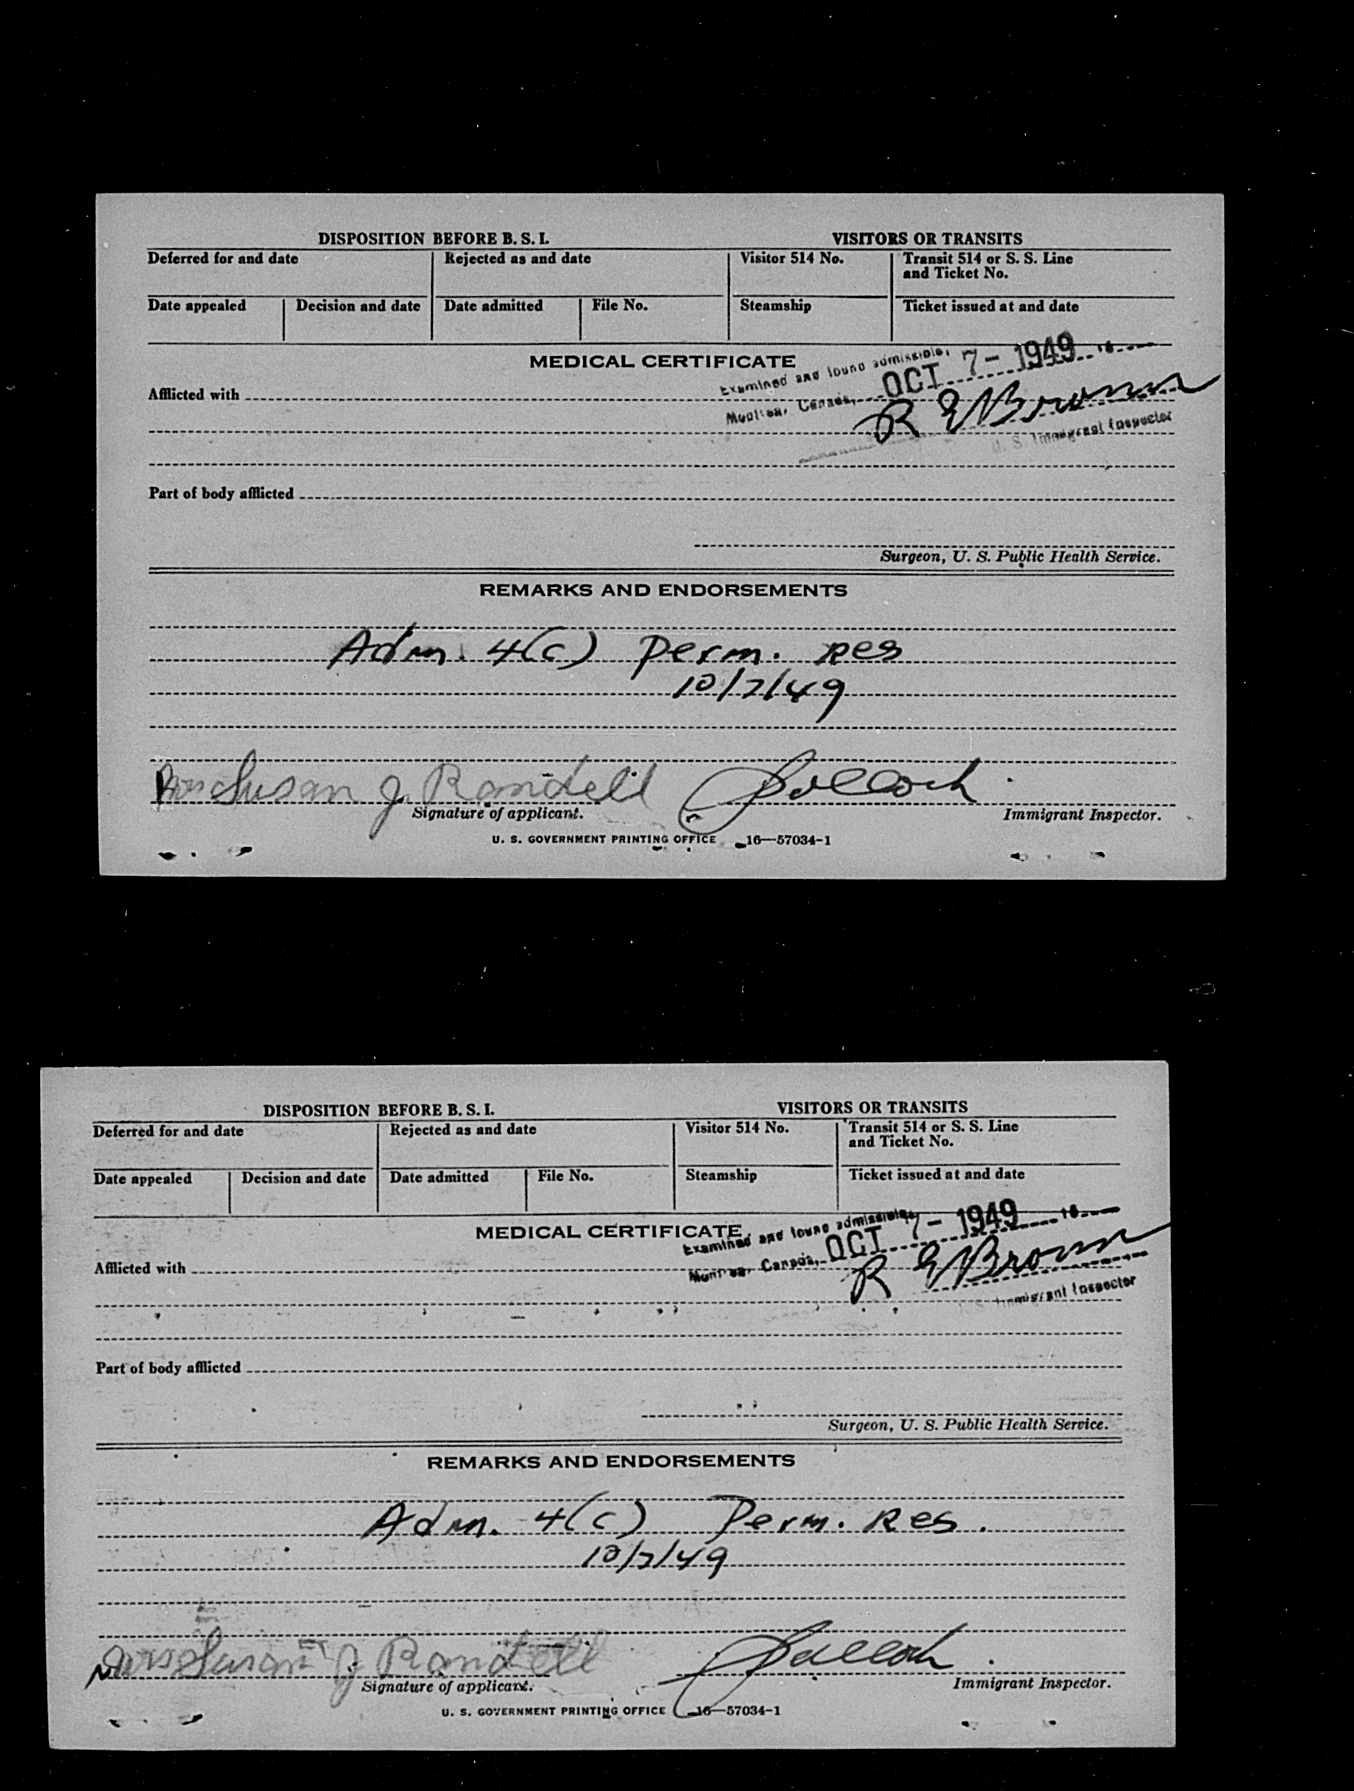 DISPOSITION BEFORE B. S. I.
VISITORS OR TRANSITS
Deferred for and date
Rejected as and date
Visitor 514 No.
Transit 514 or S. S. Line
and Ticket No.
Date appealed
Decision and date
Date admitted
File No.
Steamship
Ticket issued at and date
MEDICAL CERTIFICATE
Examined and found admissible,
OCT 7 - 1949
Afflicted with
Montreal, Canada,
R E Brown
U. S. Immigrant Inspector
Part of body afflicted
Surgeon, U. S. Public Health Service.
REMARKS AND ENDORSEMENTS
Adm. 4(c) Perm. Res
10/7/49
Mrs Susan J. Randell
Signature of applicant.
Immigrant Inspector.
U. S. GOVERNMENT PRINTING OFFICE 16—57034-1
DISPOSITION BEFORE B. S. I.
VISITORS OR TRANSITS
Deferred for and date
Rejected as and date
Visitor 514 No.
Transit 514 or S. S. Line
and Ticket No.
Date appealed
Decision and date
Date admitted
File No.
Steamship
Ticket issued at and date
MEDICAL CERTIFICATE
Examined and found admissible,
OCT 7 - 1949
Afflicted with
Montreal, Canada,
R E Brown
U. S. Immigrant Inspector
Part of body afflicted
Surgeon, U. S. Public Health Service.
REMARKS AND ENDORSEMENTS
Adm. 4(c) Perm. Res.
10/7/49
Mrs Susan J. Randell
Signature of applicant.
Immigrant Inspector.
U. S. GOVERNMENT PRINTING OFFICE 16—57034-1